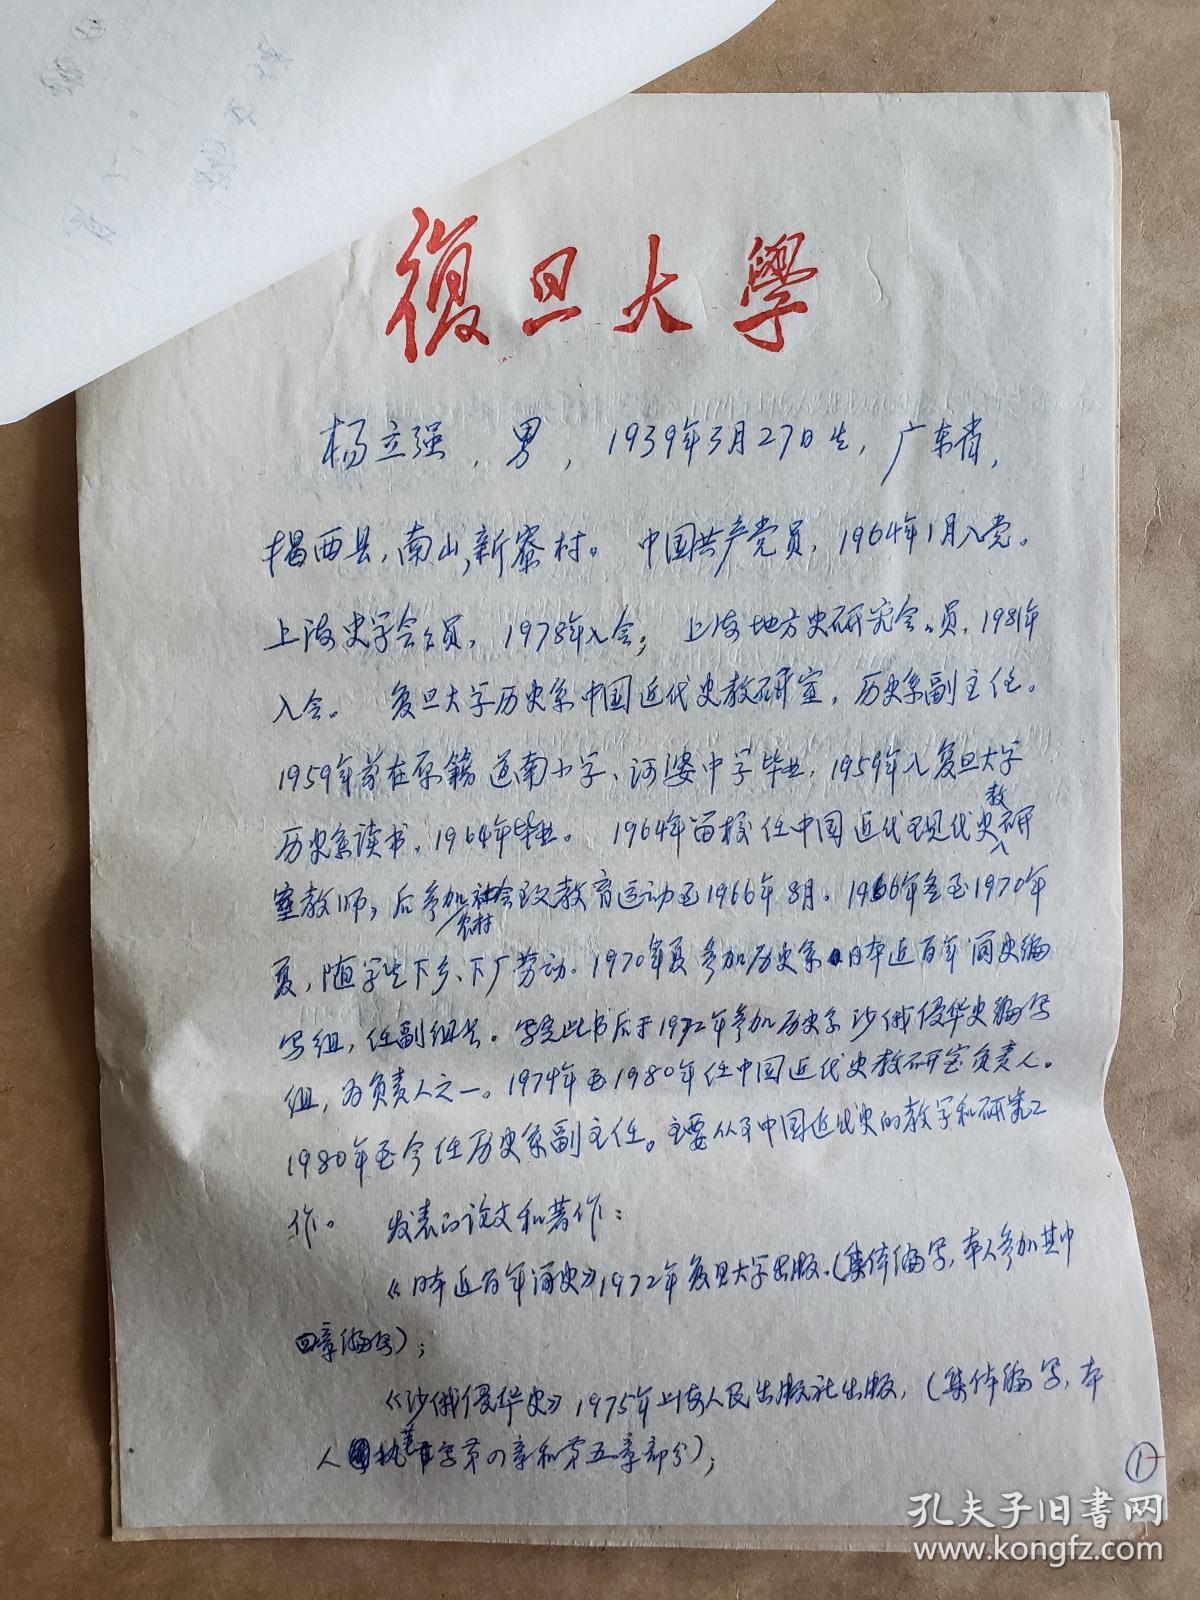 復旦大學
杨立强，男，1939年3月27日生，广东省，
揭西县，南山，新寮村。 中国共产党员，1964年1月入党。
上海史学会会员，1978年入会； 上海地方史研究会会员，1981年
入会。 复旦大学历史系中国近代史教研室，历史系副主任。
1959年前在原籍道南小学、河婆中学毕业，1959年入复旦大学
历史系读书，1964年毕业。 1964年留校任中国近代现代史教研
室教师，后参加农村社会主义教育运动至1966年8月。1966年冬至1970年
夏，随学生下乡、下厂劳动。1970年夏参加历史系日本近百年简史编
写组，任副组长。写完此书后于1972年参加历史系沙俄侵华史编写
组，为负责人之一。1974年至1980年任中国近代史教研室负责人。
1980年至今任历史系副主任。主要从事中国近代史的教学和研究工
作。 发表的论文和著作：
《日本近百年简史》1972年复旦大学出版。（集体编写，本人参加其中
四章编写）；
《沙俄侵华史》1975年上海人民出版社出版，（集体编写，本
人执笔写第四章和第五章部分）；
1
孔夫子旧书网
www.kongfz.com